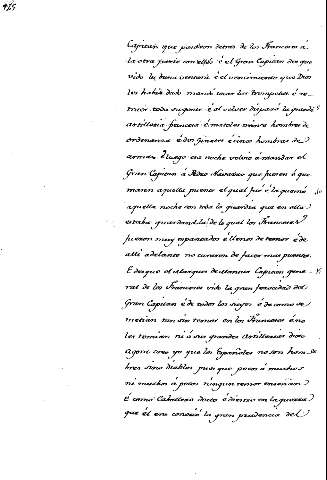 425
Capitan que pusieron detras de los Franceses a
la otra puente con ellos é el Gran Capitan des que
vido la buena ventura é el vencimiento que Dios
les habia dado mandó tocar las trompetas é re-
coxer toda su gente é el volver disparó la
artilleria francesa é mataron cinco hombres de
ordenanza é dos Ginetes é cinco hombres de
armas. Luego esa noche volvió á mandar el
Gran Capitan á Pedro Navarro que fuesen é que-
masen aquella puente el qual fué é la quemó
aquella noche con toda la guardia que en ella
estaba guardandola de lo qual los Franceses
fueron muy espantados é llenos de temor é de
alli adelante no curaron de facer mas puentes.
E desque el Marques de Mantua Capitan gene-
ral de los Franceses vido la gran ferocidad del
Gran Capitan é de todos los suyos é de como se
metian tan sin temor en los Franceses é no
les temian ni á sus grandes Artillerias dixo
agora creo yo que los Españoles no son hom-
bres sino diablos pues que pocos á muchos
ni muchos á pocos ningun temor
E como Caballero discreto é diestro en la guerra
que él era conoció la gran prudencia del